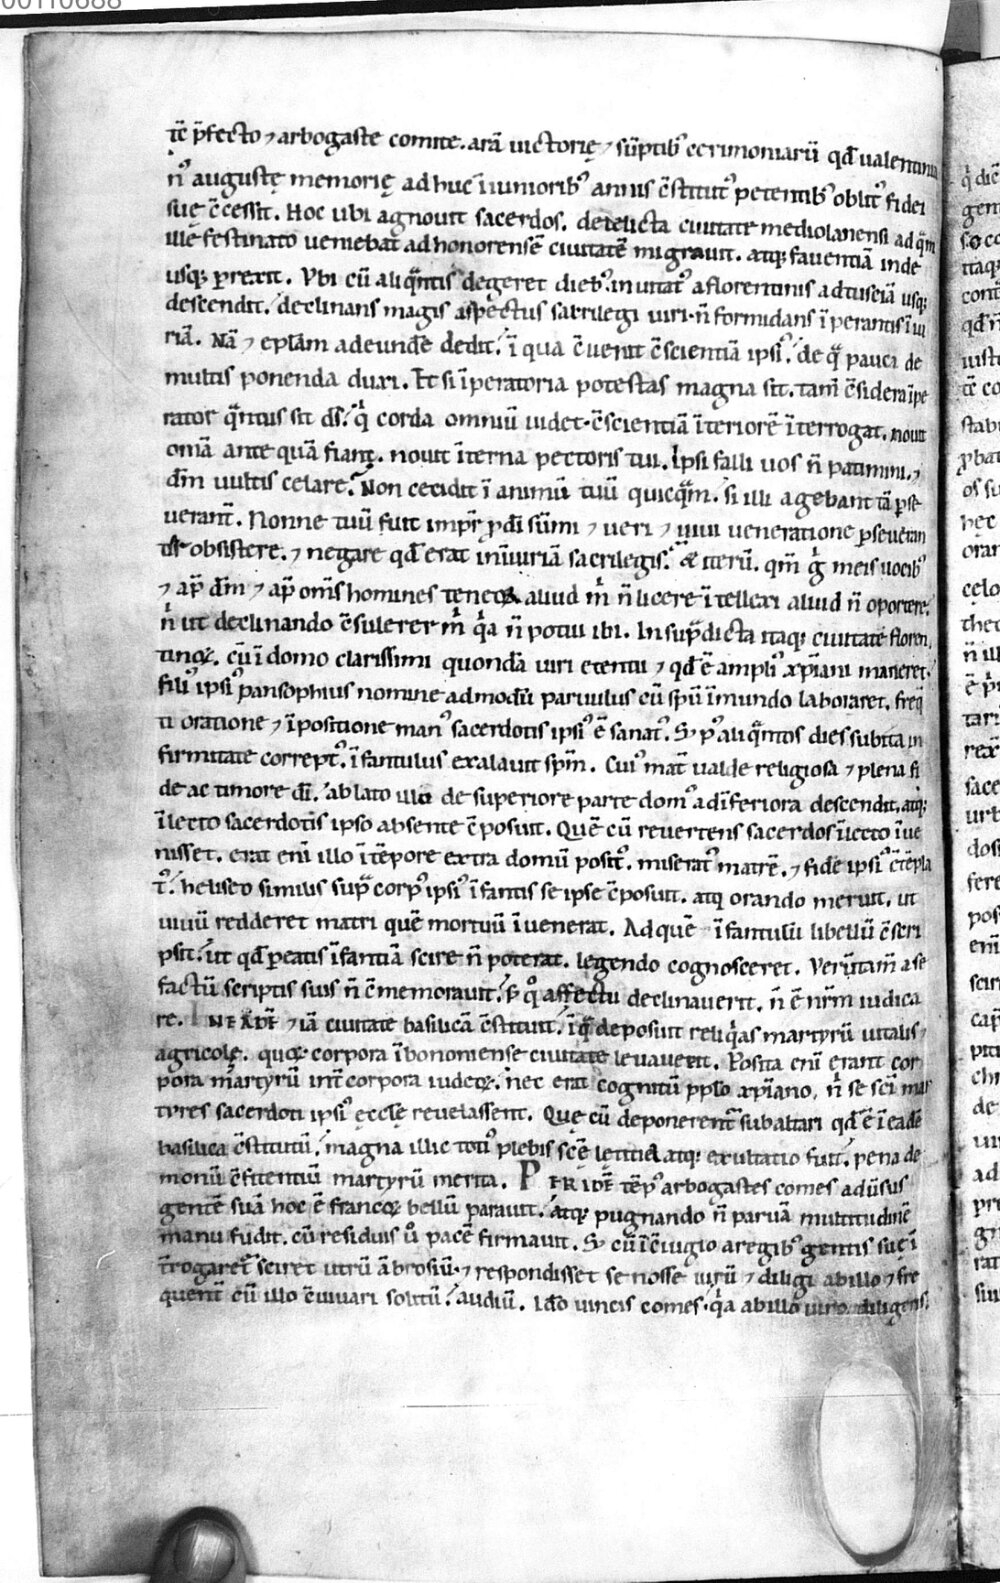 00110688
tē p̄fecto ⁊ arbogaste comite. arā uictorię ⁊ sūptibꝰ cerimoniarū qđ ualentinia
nꝰ augustę memorię adhuc ī iumoribꝰ annis c̄stitutꝰ petentibꝰ oblitꝰ fidei
suę c̄cessit. Hoc ubi agnouit sacerdos. derelicta ciuitate mediolanensi ad q̄m
ille festinato ueniebat ad honorensē ciuitatē migrauit. atqꝫ fauentiā inde
usqꝫ ꝑrexit. Vbi cū aliq̄ntis degeret diebꝰ. inuitatꝰ a florentinis ad tusciā usqꝫ
descendit. declinans magis aspectus sacrilegi uiri. n̄ formidans īperantis īiu
riā. Nā ⁊ eplam ad eundē dedit. ī qua c̄uenit c̄scientiā ipsiꝰ. de q̄ pauca de
multis ponenda duxi. Et si īperatoria potestas magna sit. tam̄ c̄sidera īpe
rator q̄ntus sit ds̄. qͥ corda omniū uidet. c̄scientiā īteriorē īterrogat. nouit
om̄a ante quā fiant. nouit īterna pectoris tui. Ipsi falli uos n̄ patimini. ⁊
dm̄ uultis celare. Non cecidit ī animū tuū quicq̄m. Si illi agebant tā ꝑse
uerant̄. Nonne tuū fuit impr̄ ꝓ dī sūmi ⁊ ueri ⁊ uiui ueneratione ꝑseueran
tiꝰ obsistere. ⁊ negare qđ erat iniuriā sacrilegis. & iterū. qm̄ gͥ meis uocibꝰ
⁊ ap̄ dm̄ ⁊ ap̄ om̄s homines teneor aliud mͥ n̄ licere ītellexi aliud n̄ oportere.
nͥ ut declinando c̄sulerem mͥ qͥa n̄ potui ibi. In sup̄dicta itaqꝫ ciuitate floren
tinoꝝ. cū ī domo clarissimi quondā uiri etentii ⁊ qđ ē ampliꝰ xp̄iani maneret.
filiꝰ ipsiꝰ pansophius nomine admodū paruulus cū spū īmundo laboraret. freq̄
ti oratione ⁊ īpositione manꝰ sacerdotis ipsiꝰ ē sanatꝰ. Sꝫ pꝰ aliq̄ntos dies subita in
firmitate correptꝰ. īfantulus exalauit spm̄. Cuiꝰ mat̄ ualde religiosa ⁊ plena fi
de ac timore dī. ablato illo de superiore parte domꝰ ad īferiora descendit. atqꝫ
ī lecto sacerdotis ipso absente c̄posuit. Quē cū reuertens sacerdos ī lecto īue
nisset. erat enī illo ī tēpore extra domū positꝰ. miseratꝰ matrē. ⁊ fidē ipsiꝰ c̄tēpla
tꝰ. heliseo similis sup̄ corpꝰ ipsiꝰ īfantis se ipse c̄posuit. atqꝫ orando meruit. ut
uiuū redderet matri quē mortuū īuenerat. Ad quē īfantulū libellū c̄scri
psit. ut qđ ꝑ etatis īfantiā scire n̄ poterat. legendo cognosceret. Verūtam̄ a se
factū scriptis suis n̄ c̄memorauit. sꝫ qͦ affectu declinauerit. n̄ ē nr̄m iudica
re. INEADĒ ⁊iā ciuitate basilicā c̄stituit. ī q̄ deposuit reliqͥas martyrū uitalis ⁊
agricolę. quoꝝ corpora ī bononiense ciuitate leuauerit. Posita enī erant cor
pora martyrū int̄ corpora iudeoꝝ. nec erat cognitū pplo xp̄iano. nͥ se sc̄i mar
tyres sacerdoti ipsiꝰ ecclē reuelassent. Quę cū deponerent̄ sub altari qđ ē ī eadē
basilica c̄stitutū. magna illic totiꝰ plebis sc̄e letitia atqꝫ exultatio fuit. pena de
moniū c̄fitentiū martyrū merita. PER IDĒ tēpꝰ arbogastes comes adūsus
gentē suā hoc ē francoꝝ bellū parauit. atqꝫ pugnando n̄ paruā multitudinē
manu fudit. cū residuis ū pacē firmauit. Sꝫ cū ī c̄iugio a regibꝰ gentis suę ī
t̄rogaret̄ sciret utrū ābrosiū. ⁊ respondisset se nosse uirū ⁊ diligi ab illo ⁊ fre
quent̄ cū illo c̄uiuari solitū. audiuit. Ido uincis comes. qͥa ab illo uiro diligeris.